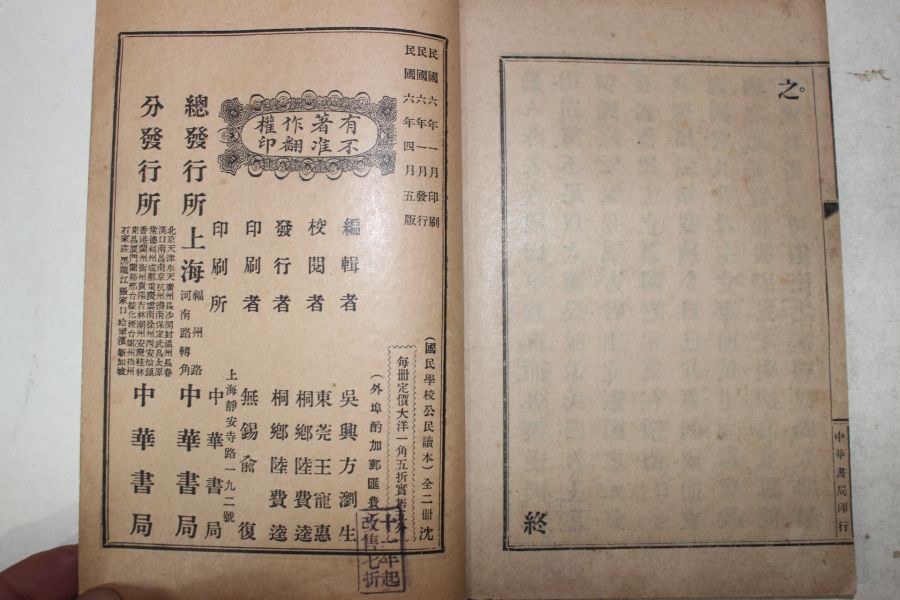 之。
終
中華書局印行
民國六年一月印刷
民國六年一月發行
民國六年四月五版
有著作權
不准翻印
(國民學校公民讀本)全二冊
每冊定價大洋一角五折實售
(外埠酌加郵匯費
編輯者 吳興方瀏生
校閱者 東莞王寵惠
桐鄉陸費逵
發行者 桐鄉陸費逵
印刷者 無錫俞復
上海靜安寺路一九二號
印刷所 中華書局
總發行所 上海 福州路 河南路轉角 中華書局
分發行所
北京天津奉天廣州長沙開封溫州長春
漢口南昌南京杭州濟南保定武昌太原
常德福州成都重慶雲南徐州西安汕頭
香港蘭州衡州貴陽吉林潮州安慶桂林
石家莊黑龍江張家口哈爾濱新加坡
中華書局
十一年起
改售七折